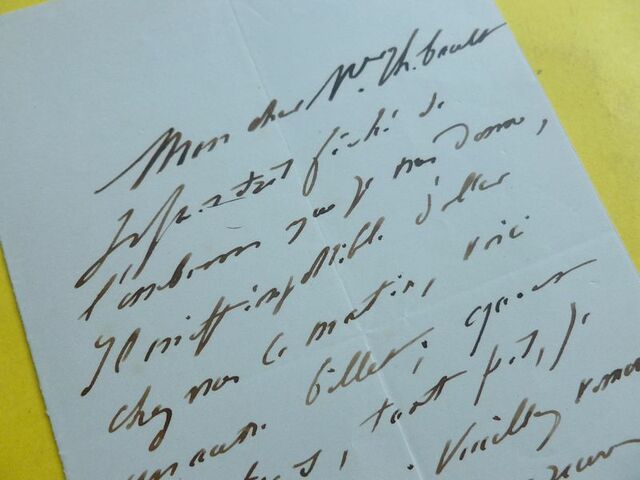 Mon cher Mr. Thibault
Je suis tout fâché de
l'embarras que je vous donne,
Il m'est impossible d'aller
chez vous ce matin, voici
un autre billet;
, tant pis, je
. Veuillez